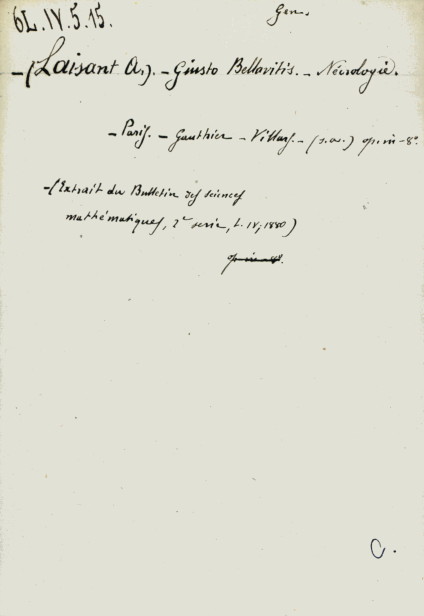 6L.IV.5.15.
Gen.
-(Laisant A.). - Giusto Bellavitis. - Nécrologie.
- Paris. - Gauthier - Villars. - (s.a.) op. in - 8°
-(Extrait du Bulletin des sciences
mathématiques, 2e serie, t. IV, 1880)
op. in - 8°.
C.